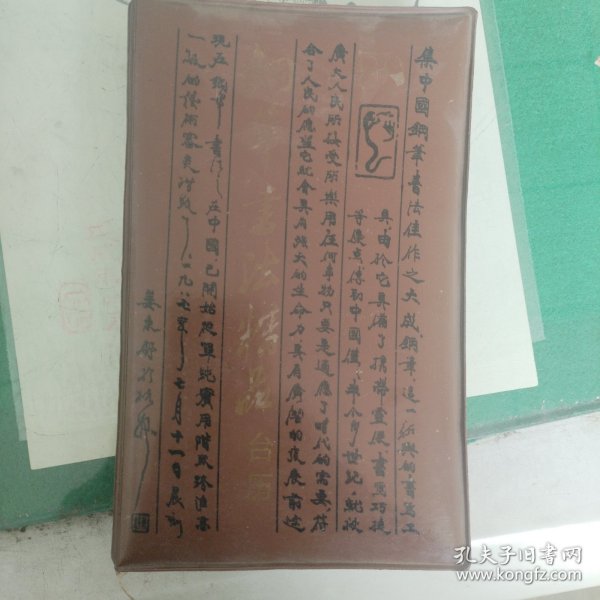 集中國鋼筆書法佳作之大成鋼筆,這一新興的書寫工
具,由於它具備了攜帶靈便,書寫巧捷
等優點傳到中國僅半个多世紀,就被
廣大人民所接受所樂用,任何事物只要是適應了時代的需要,符
合了人民的願望它就會具有強大的生命力,具有廣闊的發展前途
书法精品
台历
現在鋼筆書法在中國,已開始從單純實用階段跨進高
一級的藝術審美階段了,一九八七年七月十一日晨於
姜東舒
孔夫子旧书网
www.kongfz.com